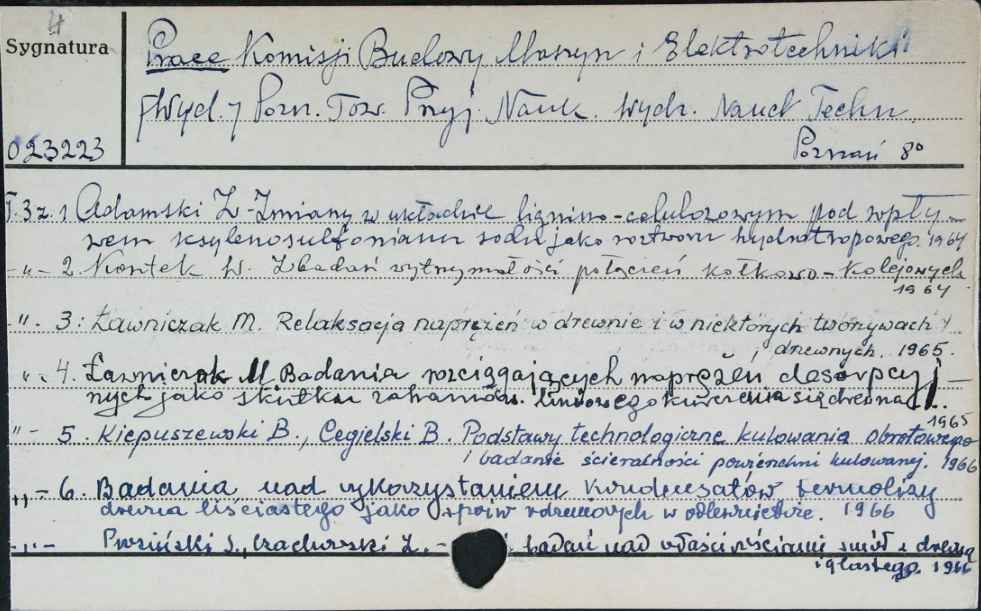 4
Sygnatura
Prace Komisji Budowy Maszyn i Elektrotechniki
[Wyd.] Pozn. Tow. Przyj. Nauk. Wydz. Nauk Techn.
023223
Poznań 8°
T. 3 z. 1 Adamski Z. - Zmiany w układzie lignino-celulozowym pod wpły-
wem ksylenosulfonianu sodu jako roztworu hydrotropowego. 1964
-"- 2. Kontek W. Z badań wytrzymałości połączeń kołkowo-kolejowych
1964
-"- 3: Ławniczak M. Relaksacja naprężeń w drewnie i w niektórych tworzywach
drzewnych. 1965.
"- 4. Ławniczak M Badania rozciągających naprężeń desorpcyj-
nych jako skutku liniowego kurczenia się drewna
1965
"- 5. Kiepuszewski B., Cegielski B. Podstawy technologiczne kulowania obrotowego
i badanie ścieralności powierzchni kulowanej. 1966
"- 6. Badania nad wykorzystaniem kondensatów termolizy
drewna liściastego jako spoiw rdzeniowych w odlewnictwie. 1966
-"- Prosiński S., badań nad właściwościami smół z drewna
iglastego. 1966